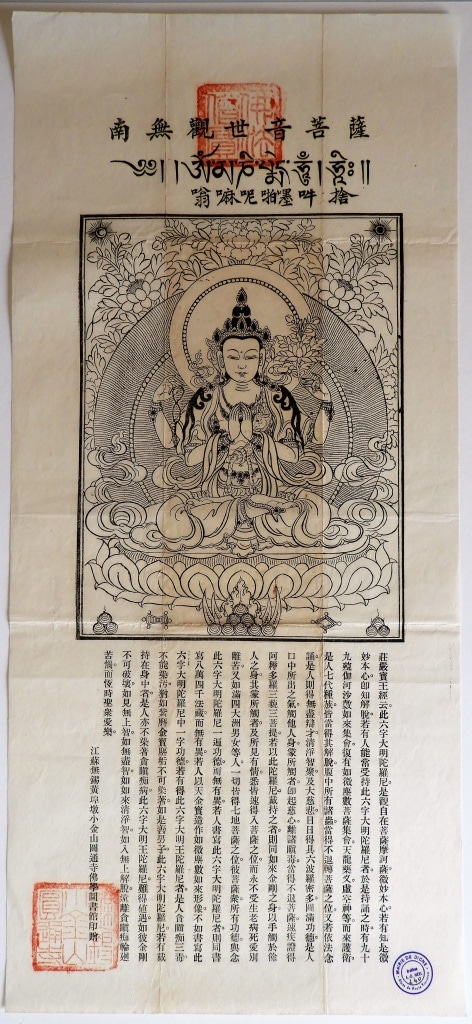 南無觀世音菩薩
༄༅། །ཨོཾ་མ་ཎི་པདྨེ་ཧཱུྃ། ཧྲཱིཿ༎
翁嘛呢啪墨吽 捨
莊嚴寶王經云此六字大明陀羅尼是觀自在菩薩摩訶薩微妙本心若有知是微
妙本心卽知解脫若有人能常受持此六字大明陀羅尼者於是持誦之時有九十
九殑伽河沙數如來集會復有如微塵數菩薩集會天龍藥叉虛空神等而來護衛
是人七代種族皆當得其解脫腹中所有諸蟲當得不退轉菩薩之位又若依法念
誦是人則得無盡辯才清淨智聚及大慈悲日日得具六波羅密多圓滿功德是人
口中所出之氣觸他人身蒙所觸者卽起慈心離諸瞋毒當得不退菩薩速疾證得
阿耨多羅三藐三菩提若以此陀羅尼戴持之者則同如來金剛之身以手觸於餘
人之身其蒙所觸者及所見有情悉皆速得入菩薩之位而永不受生老病死愛別
離苦又如滿四大洲男女等人一切皆得七地菩薩之位彼菩薩衆所有功德與念
此六字大明陀羅尼一遍功德而無有異若人書寫此六字大明陀羅尼者則同書
寫八萬四千法藏而無有異若人以天金寶造作如微塵數如來形像不如書寫此
六字大明陀羅尼中一字功德若有得此六字大明王陀羅尼者是人貪瞋痴三毒
不能染汚猶如紫磨金寶塵垢不可染著如是善男子此六字大明陀羅尼若有戴
持在身中者是人亦不染著貪瞋痴病此六字大明王陀羅尼難得値遇如彼金剛
不可破壞如見無上智如無盡智如如來清淨智如入無上解脫遠離貪瞋痴輪迴
苦惱而恆時聖衆愛樂
江蘇無錫黃埠墩小金山圓通寺佛學圖書館印贈
MAIRIE DE DIGNE